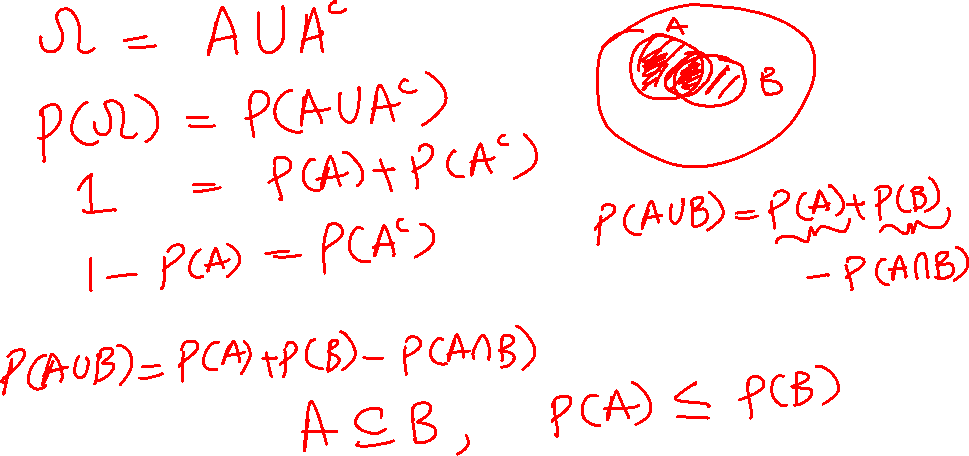 Ω = A∪Aᶜ
P(Ω) = P(A∪Aᶜ)
1 = P(A)+P(Aᶜ)
1-P(A) = P(Aᶜ)
A
B
P(A∪B) = P(A)+P(B)
-P(A∩B)
P(A∪B) = P(A)+P(B)-P(A∩B)
A⊆B, P(A) ≤ P(B)